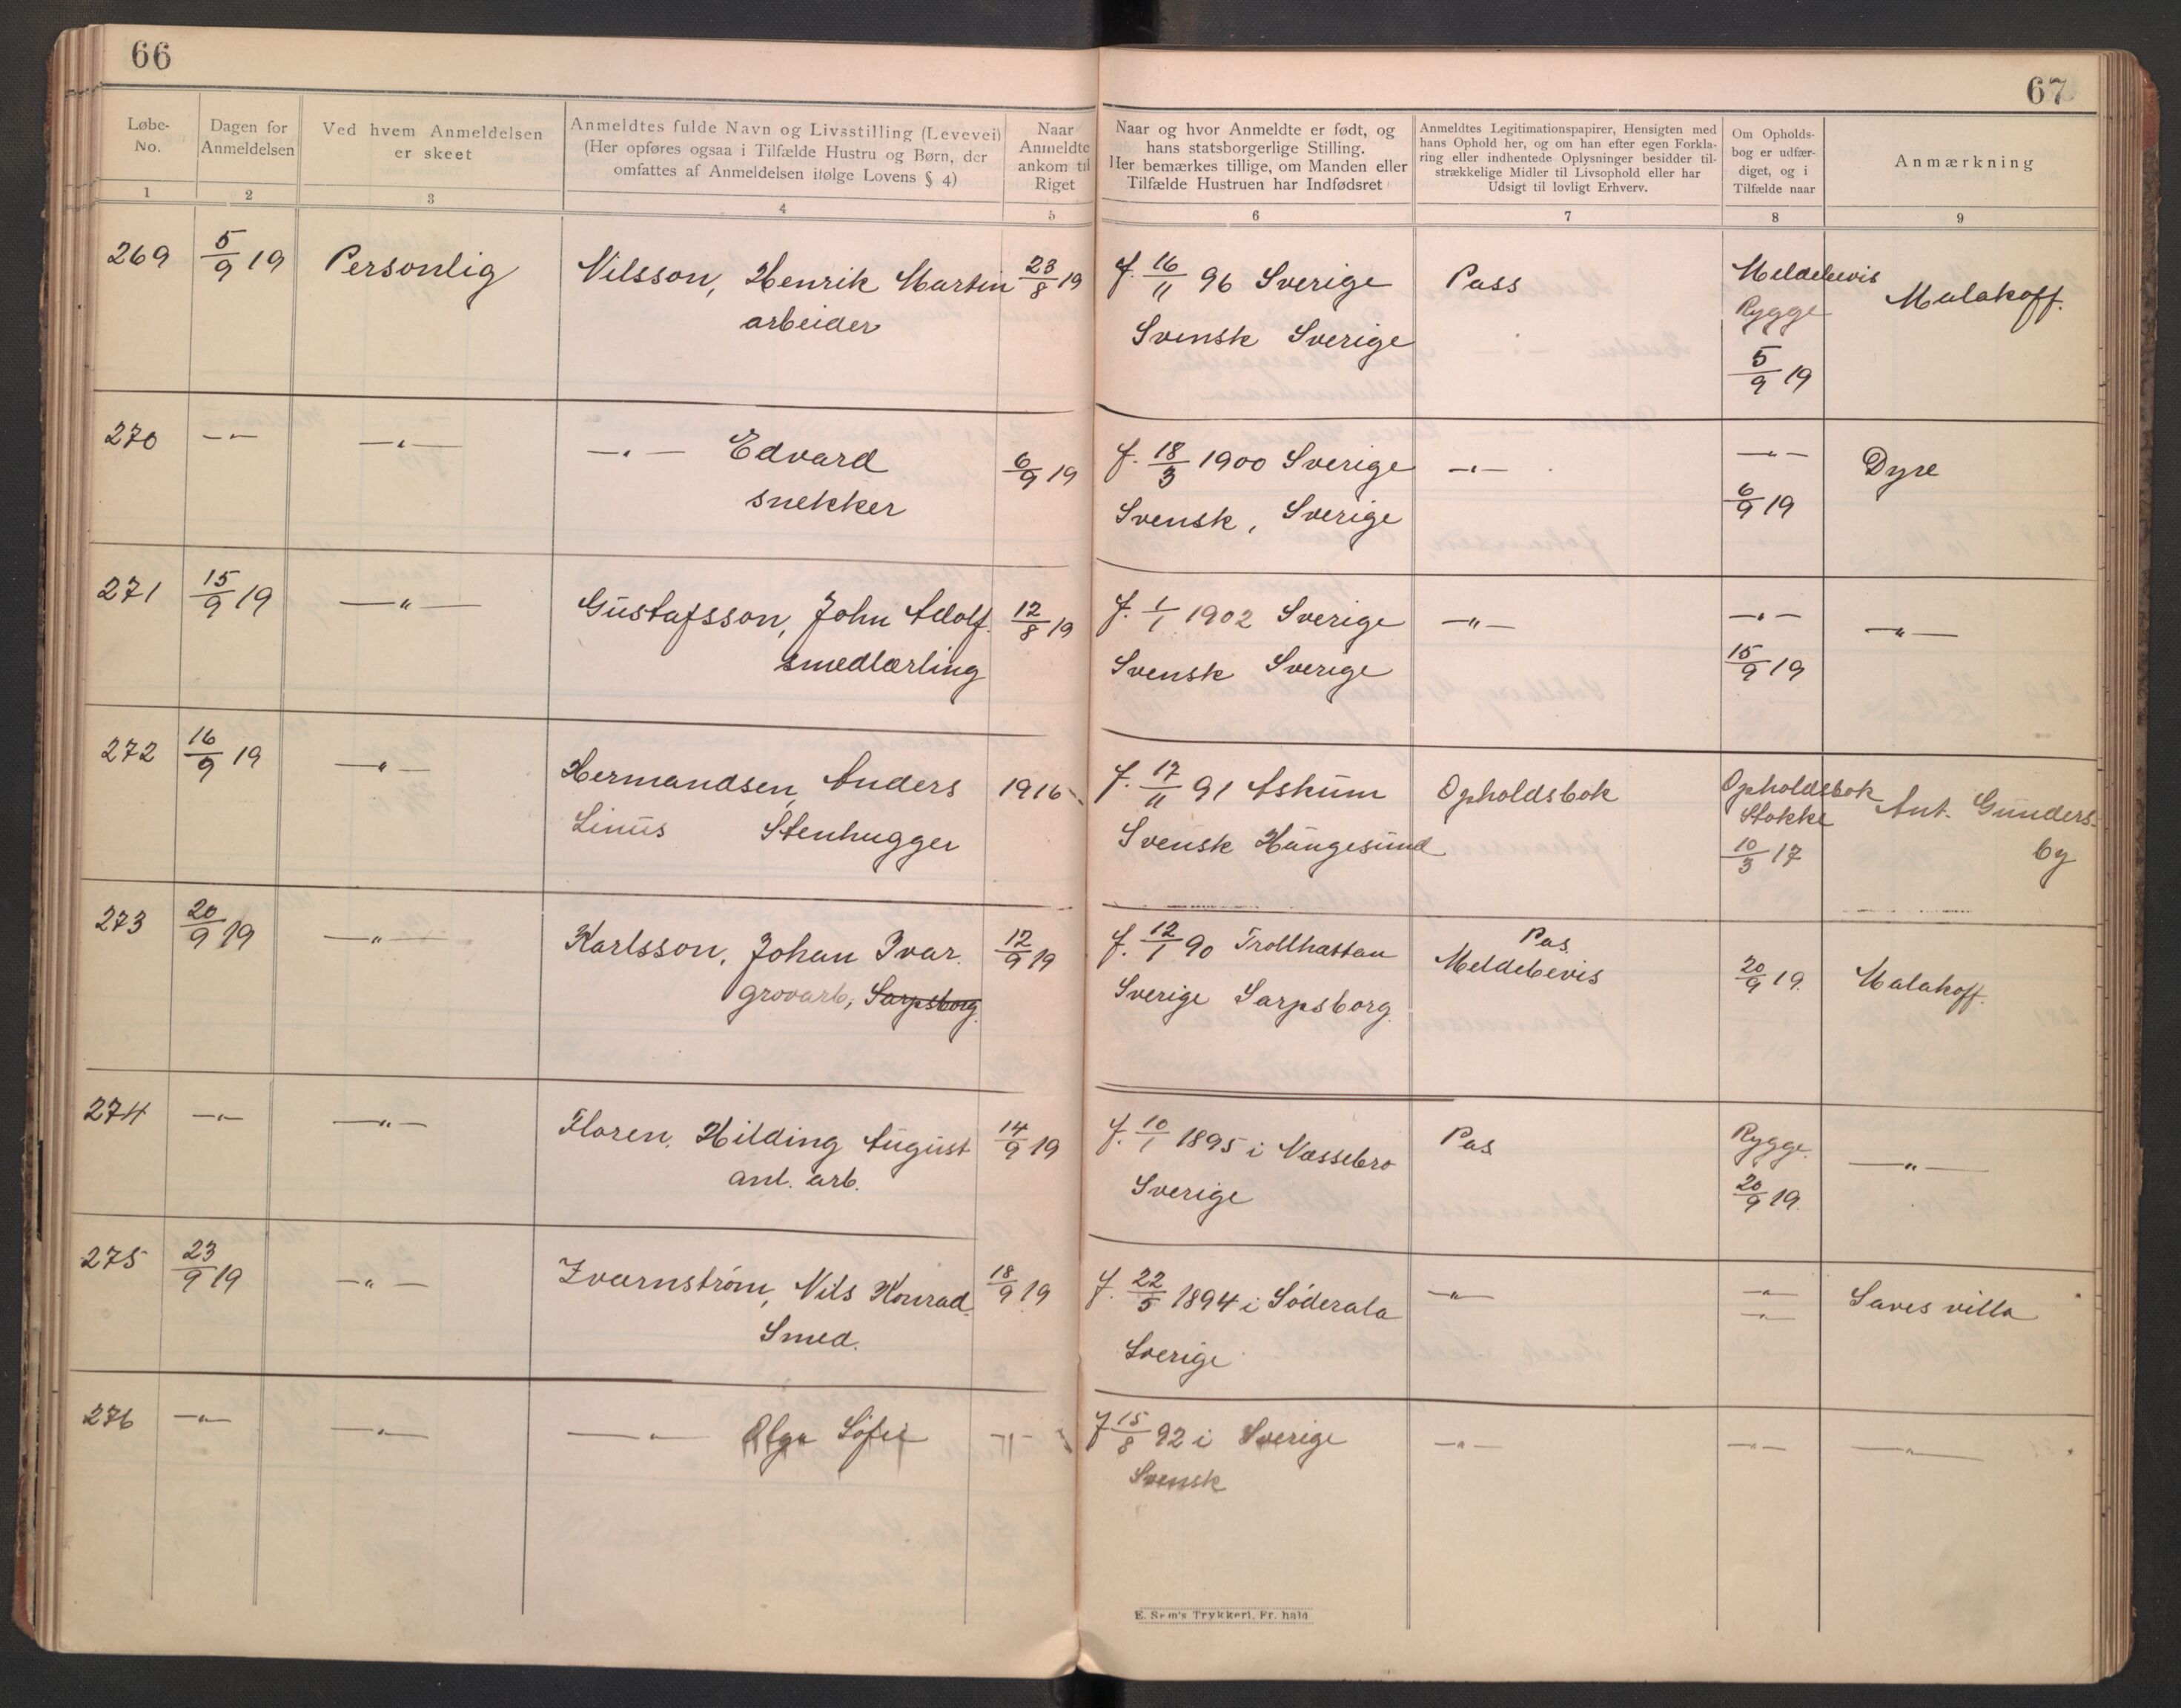 66
67
Løbe-
No.
Dagen for
Anmeldelsen
Ved hvem Anmeldelsen
er skeet
Anmeldtes fulde Navn og Livsstilling (Levevei)
(Her opføres ogsaa i Tilfælde Hustru og Børn, der
omfattes af Anmeldelsen ifølge Lovens § 4)
Naar
Anmeldte
ankom til
Riget
Naar og hvor Anmeldte er født, og
hans statsborgerlige Stilling.
Her bemærkes tillige, om Manden eller
Tilfælde Hustruen har Indfødsret
Anmeldtes Legitimationspapirer, Hensigten med
hans Ophold her, og om han efter egen Forkla-
ring eller indhentede Oplysninger besidder til-
strækkelige Midler til Livsophold eller har
Udsigt til lovligt Erhverv.
Om Opholds-
bog er udfær-
diget, og i
Tilfælde naar
Anmærkning
1 2 3 4 5 6 7 8 9
269 5/9 19 Personlig Nilsson, Henrik Martin 23/8 19 f. 16/11 96 Sverige Pass Meldebevis Malakoff.
arbeider Svensk Sverige Rygge
5/9 19
270 —"— —"— —"— Edvard 6/9 19 f. 18/3 1900 Sverige —"— —"— Dyre
snekker Svensk, Sverige 6/9 19
271 15/9 19 —"— Gustafsson, John Adolf. 12/8 19 f. 1/1 1902 Sverige —"— —"— —"—
smedlærling Svensk Sverige 15/9 19
272 16/9 19 —"— Hermandsen, Anders 1916 f. 17/11 91 Askum Opholdsbok Opholdsbok Ant. Gunders-
Linus Stenhugger Svensk Haugesund Stokke by
10/3 17
273 20/9 19 —"— Karlsson, Johan Ivar. 12/9 19 f. 12/1 90 Trollhattan Pas Meldebevis 20/9 19. Malakoff.
grovarb, Sarpsborg. Sverige Sarpsborg.
274 —"— —"— Floren, Hilding August 14/9 19 f. 10/1 1895 i Nassebro Pas Rygge. —"—
anl. arb. Sverige 20/9 19.
275 23/9 19 —"— Zvarnström, Nils Konrad. 18/9 19 f. 22/5 1894 i Söderala —"— —"— Saves villa
Smed. Sverige —"—
276 —"— —"— —"— Olga Sofie —"— f 15/8 92 i Sverige —"— —"— —"—
Svensk
E. Sem's Trykkeri, Fr. hald